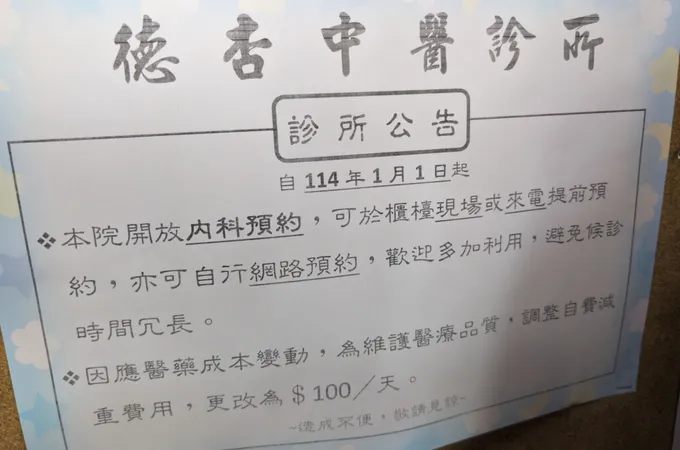 德杏中醫診所
診所公告
自 114 年 1 月 1 日起
❖ 本院開放內科預約，可於櫃檯現場或來電提前預
約，亦可自行網路預約，歡迎多加利用，避免候診
時間冗長。
❖ 因應醫藥成本變動，為維護醫療品質，調整自費減
重費用，更改為＄100／天。
~造成不便，敬請見諒~